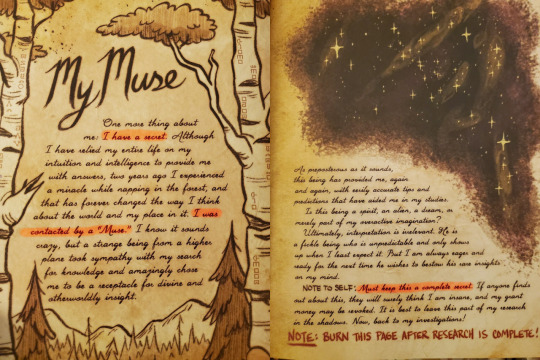 My Muse
One more thing about
me: I have a secret. Although
I have relied my entire life on my
intuition and intelligence to provide me
with answers, two years ago I experienced
a miracle while napping in the forest, and
that has forever changed the way I think
about the world and my place in it. I was
contacted by a "Muse." I know it sounds
crazy, but a strange being from a higher
plane took sympathy with my search
for knowledge and amazingly chose
me to be a receptacle for divine and
otherworldly insight.
As preposterous as it sounds,
this being has provided me, again
and again, with eerily accurate tips and
predictions that have aided me in my studies.
Is this being a spirit, an alien, a dream, or
merely part of my overactive imagination?
Ultimately, interpretation is irrelevant. He is
a fickle being who is unpredictable and only shows
up when I least expect it. But I am always eager and
ready for the next time he wishes to bestow his rare insights
on my mind.
NOTE TO SELF: Must keep this a complete secret. If anyone finds
out about this, they will surely think I am insane, and my grant
money may be revoked. It is best to leave this part of my research
in the shadows. Now, back to my investigations!
NOTE: BURN THIS PAGE AFTER RESEARCH IS COMPLETE!